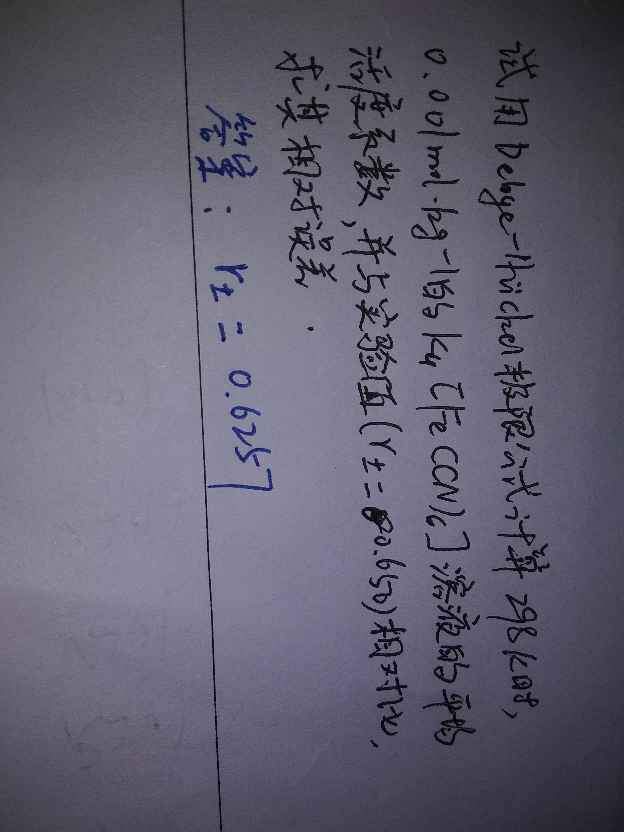 试用Debye-Hückel极限公式计算298K时,
0.001mol·kg-1的K4[Fe(CN)6]溶液的平均
活度系数,并与实验值(γ±=0.650)相对比,
求其相对误差.
答案: γ±=0.6257